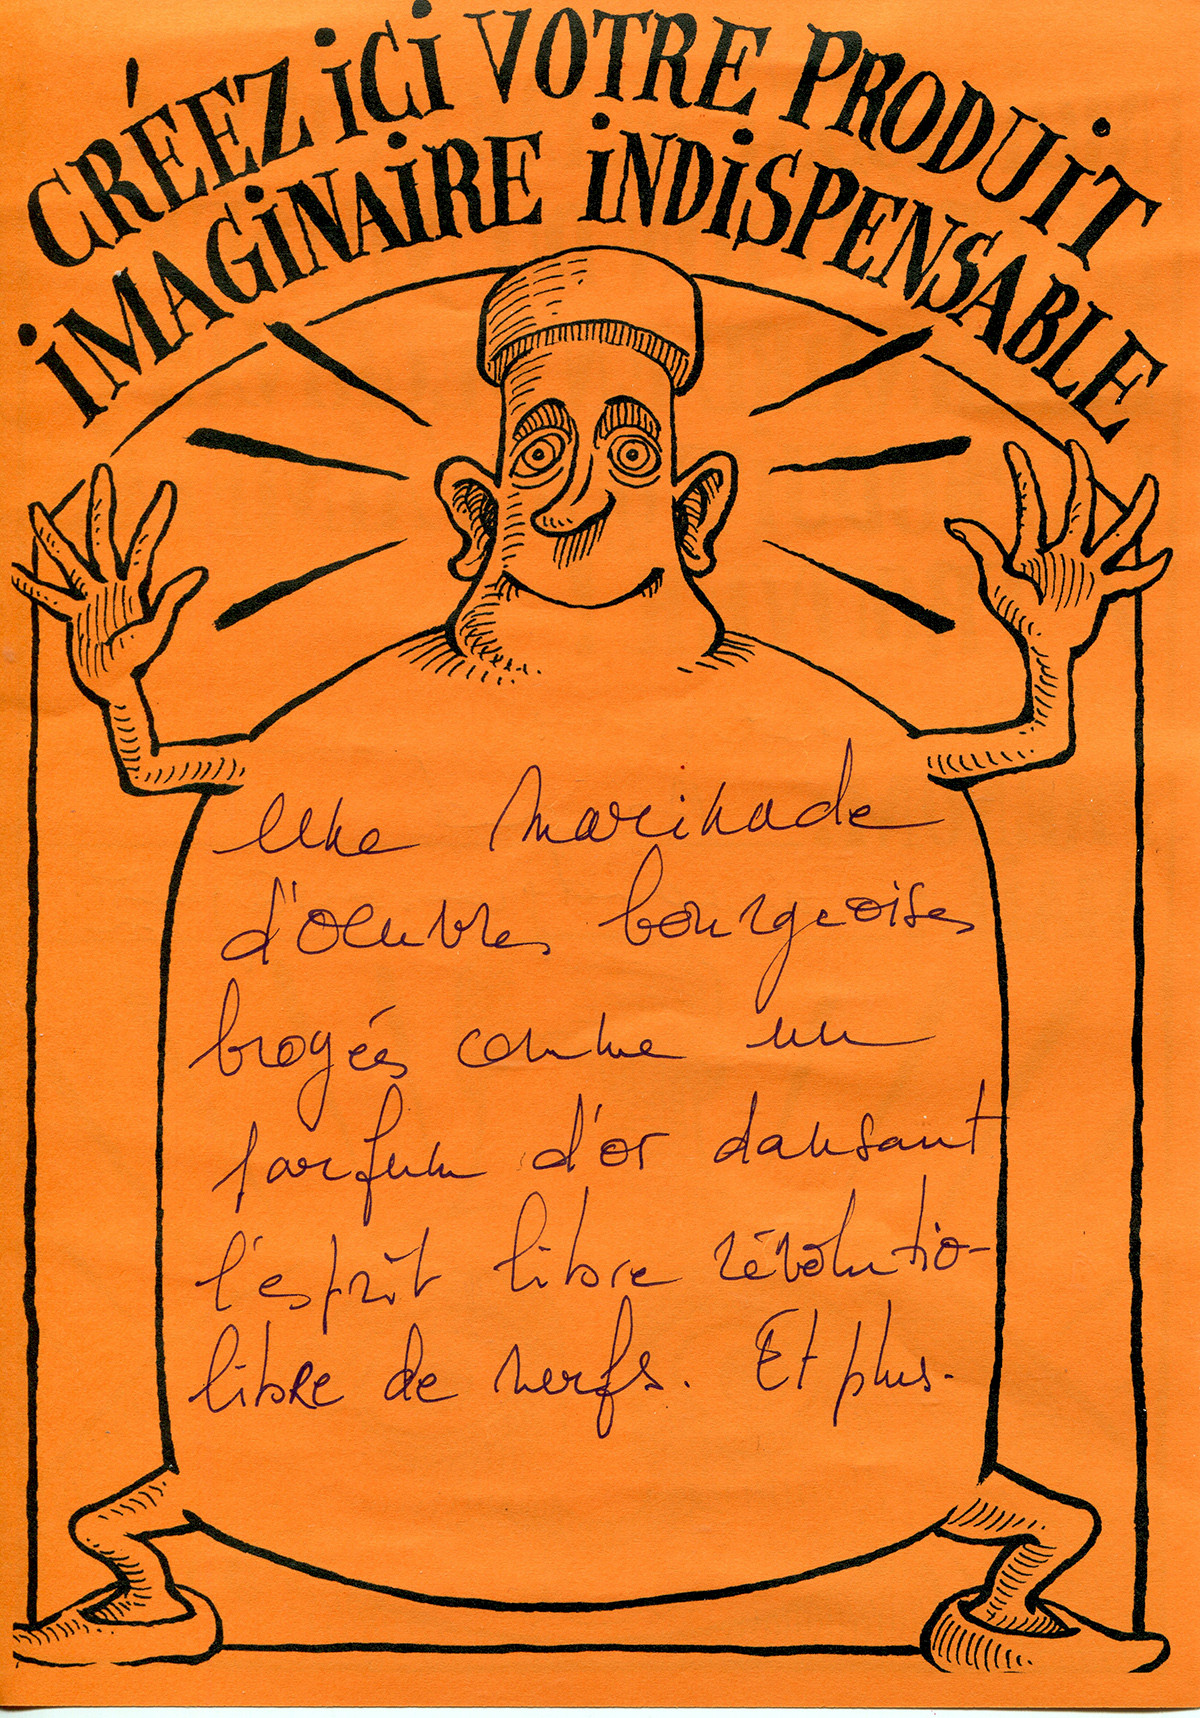 CRÉEZ iCi VOTRE PRODUiT
iMAGiNAiRE iNDiSPENSABLE
Une marinade
d'oeuvres bourgeoises
brogées comme un
parfum d'or dansant
l'esprit libre révolutio-
libre de nerfs. Et plus.